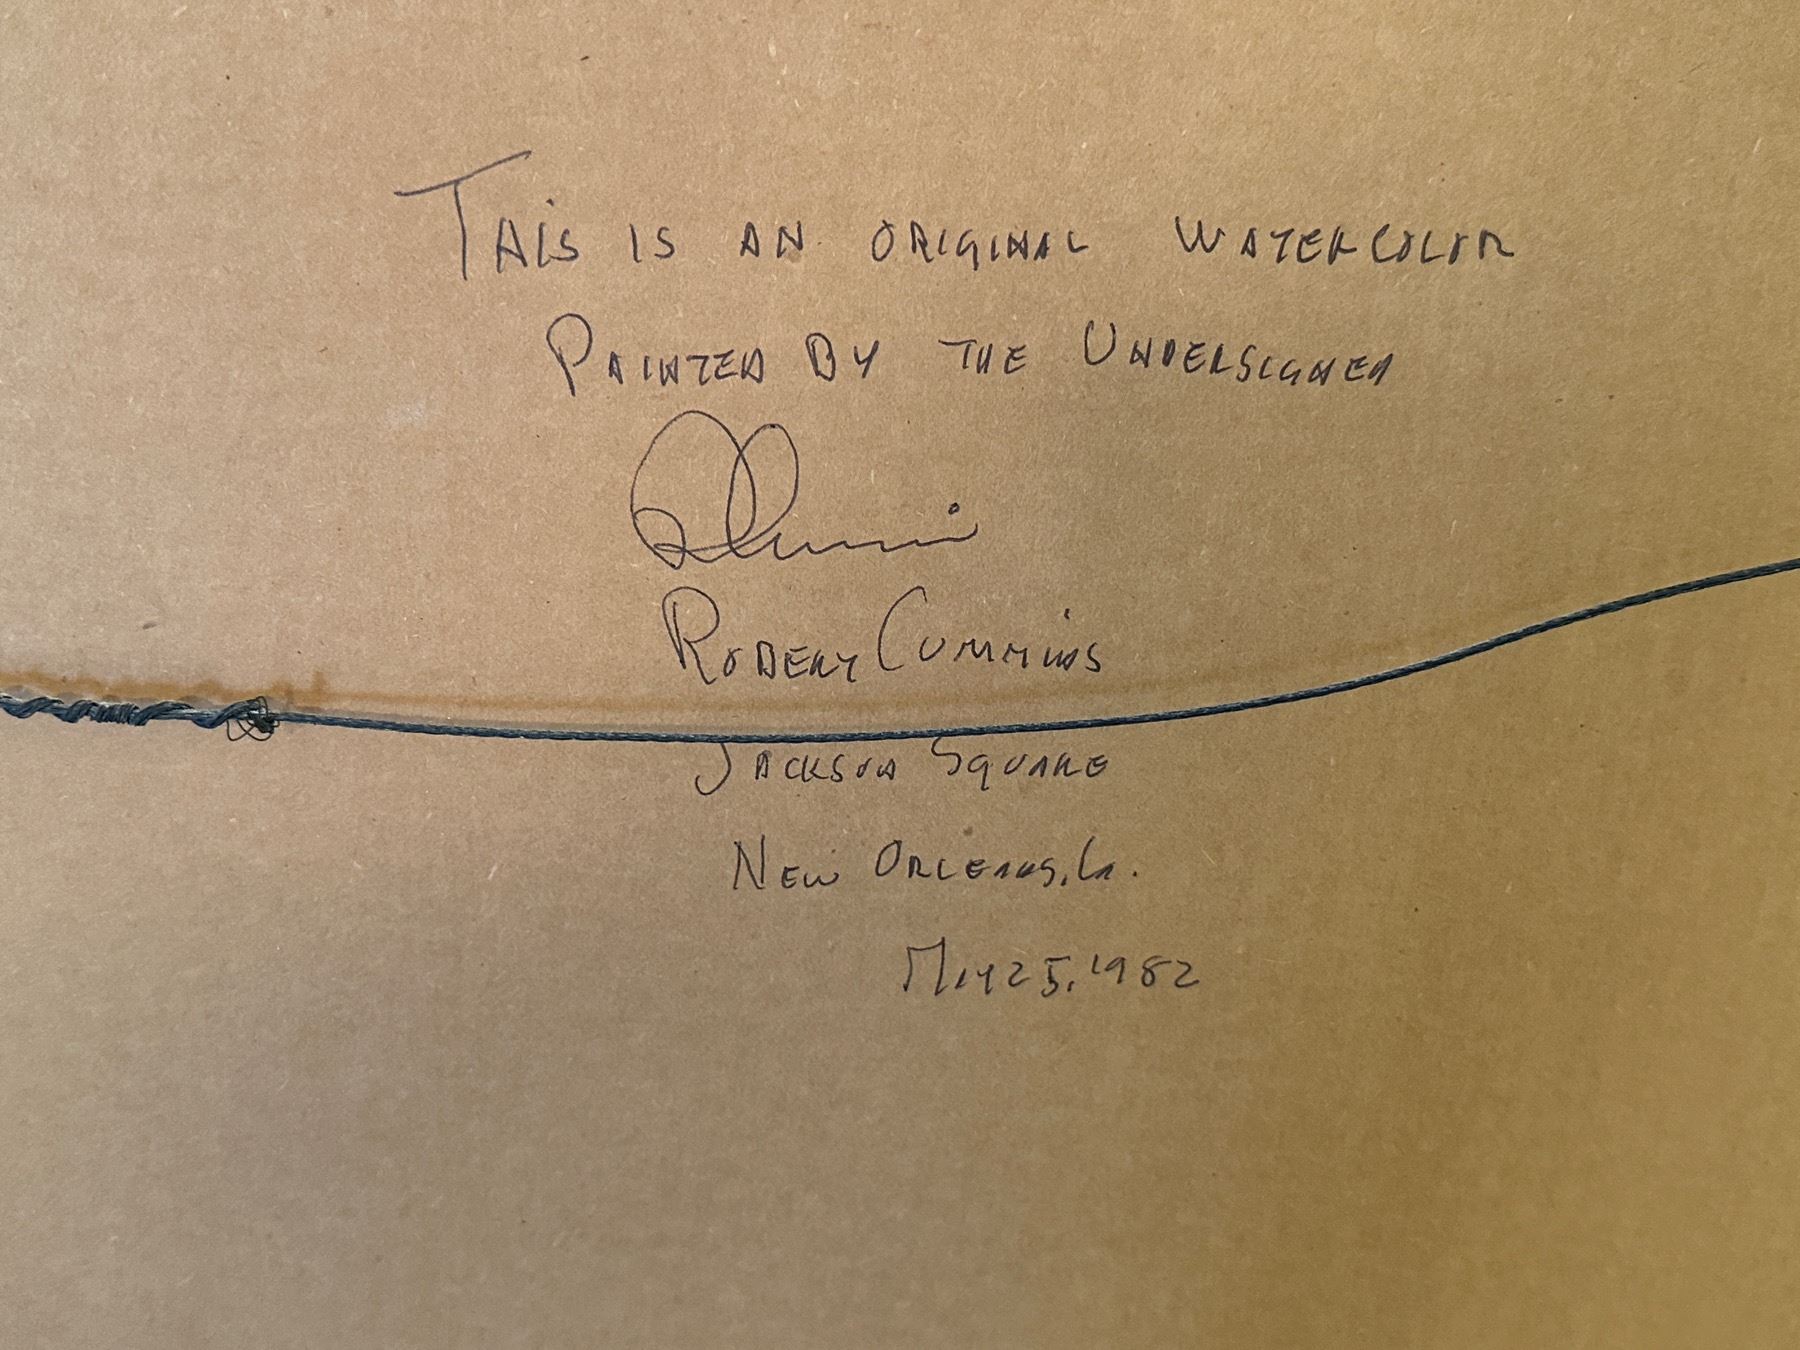 THIS IS AN ORIGINAL WATERCOLOR
PAINTED BY THE UNDERSIGNED
RCummins
ROBERT CUMMINS
JACKSON SQUARE
NEW ORLEANS, LA.
MAY 25, 1982